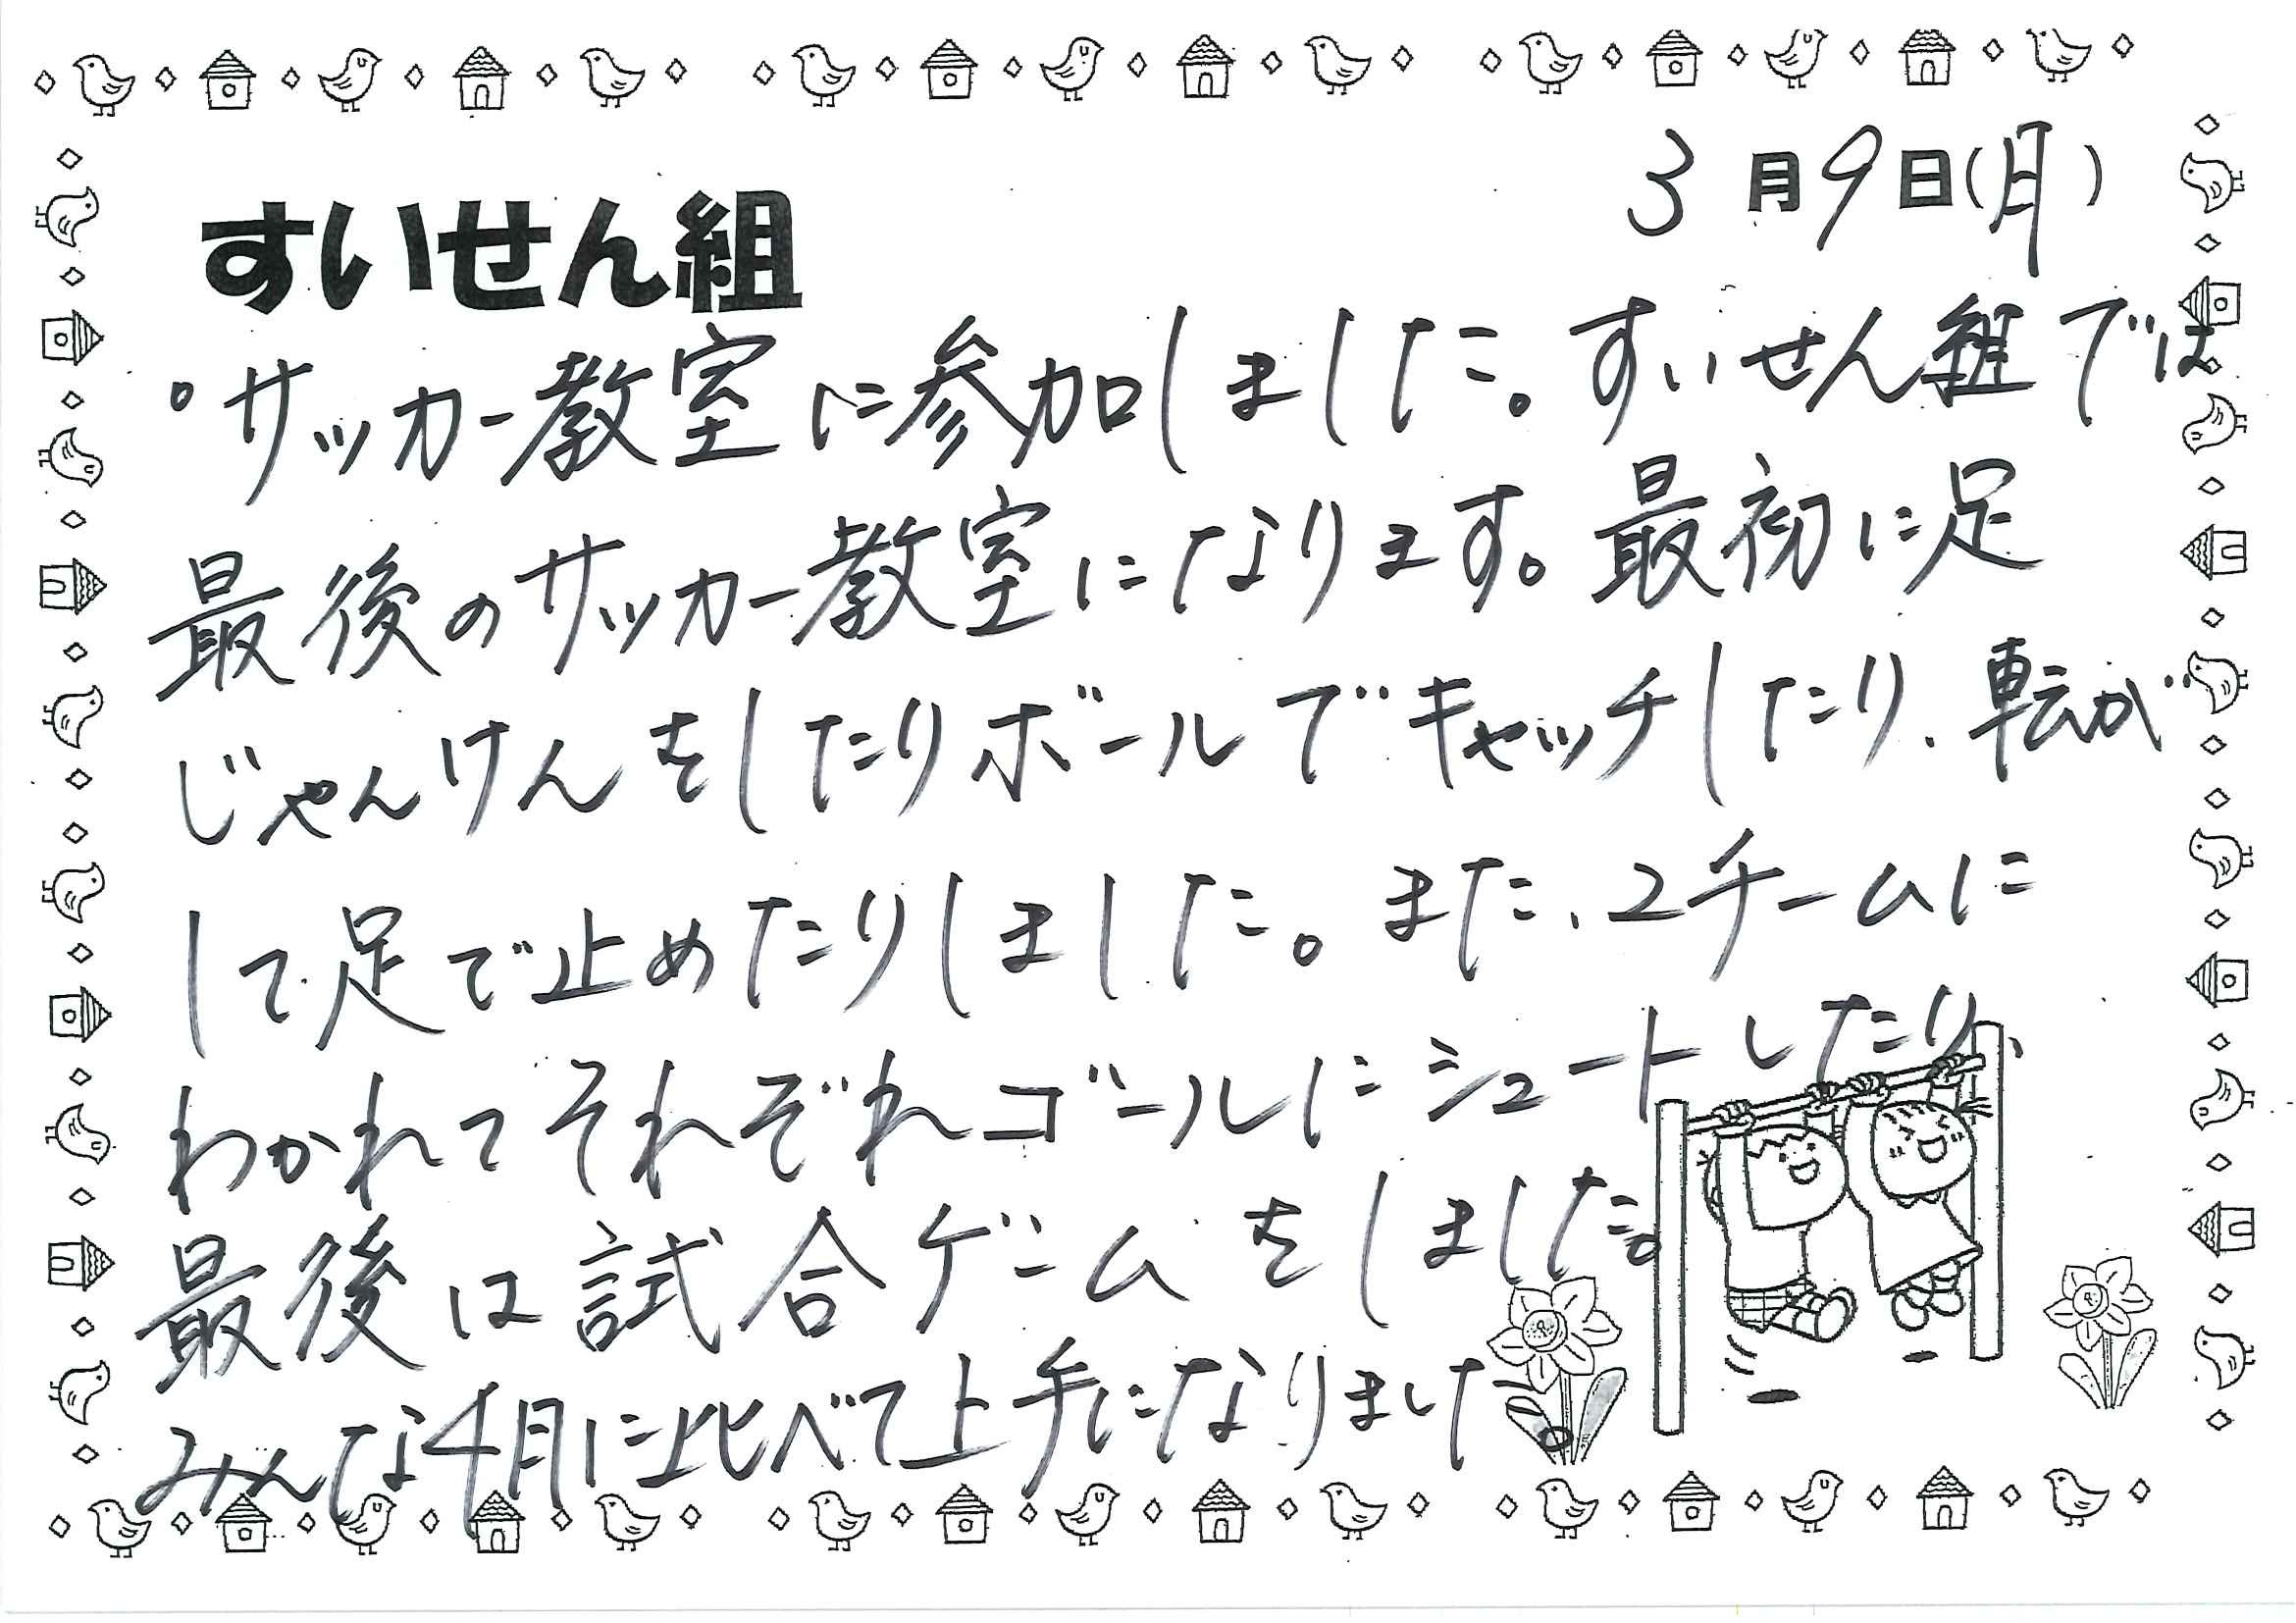 3月9日(月)
すいせん組
。サッカー教室に参加しました。すいせん組では
最後のサッカー教室になります。最初に足
じゃんけんをしたりボールでキャッチしたり、転が
して足で止めたりしました。また、2チームに
わかれてそれぞれゴールにシュートしたり、
最後は試合ゲームをしました。
みんな4月に比べて上手になりました。